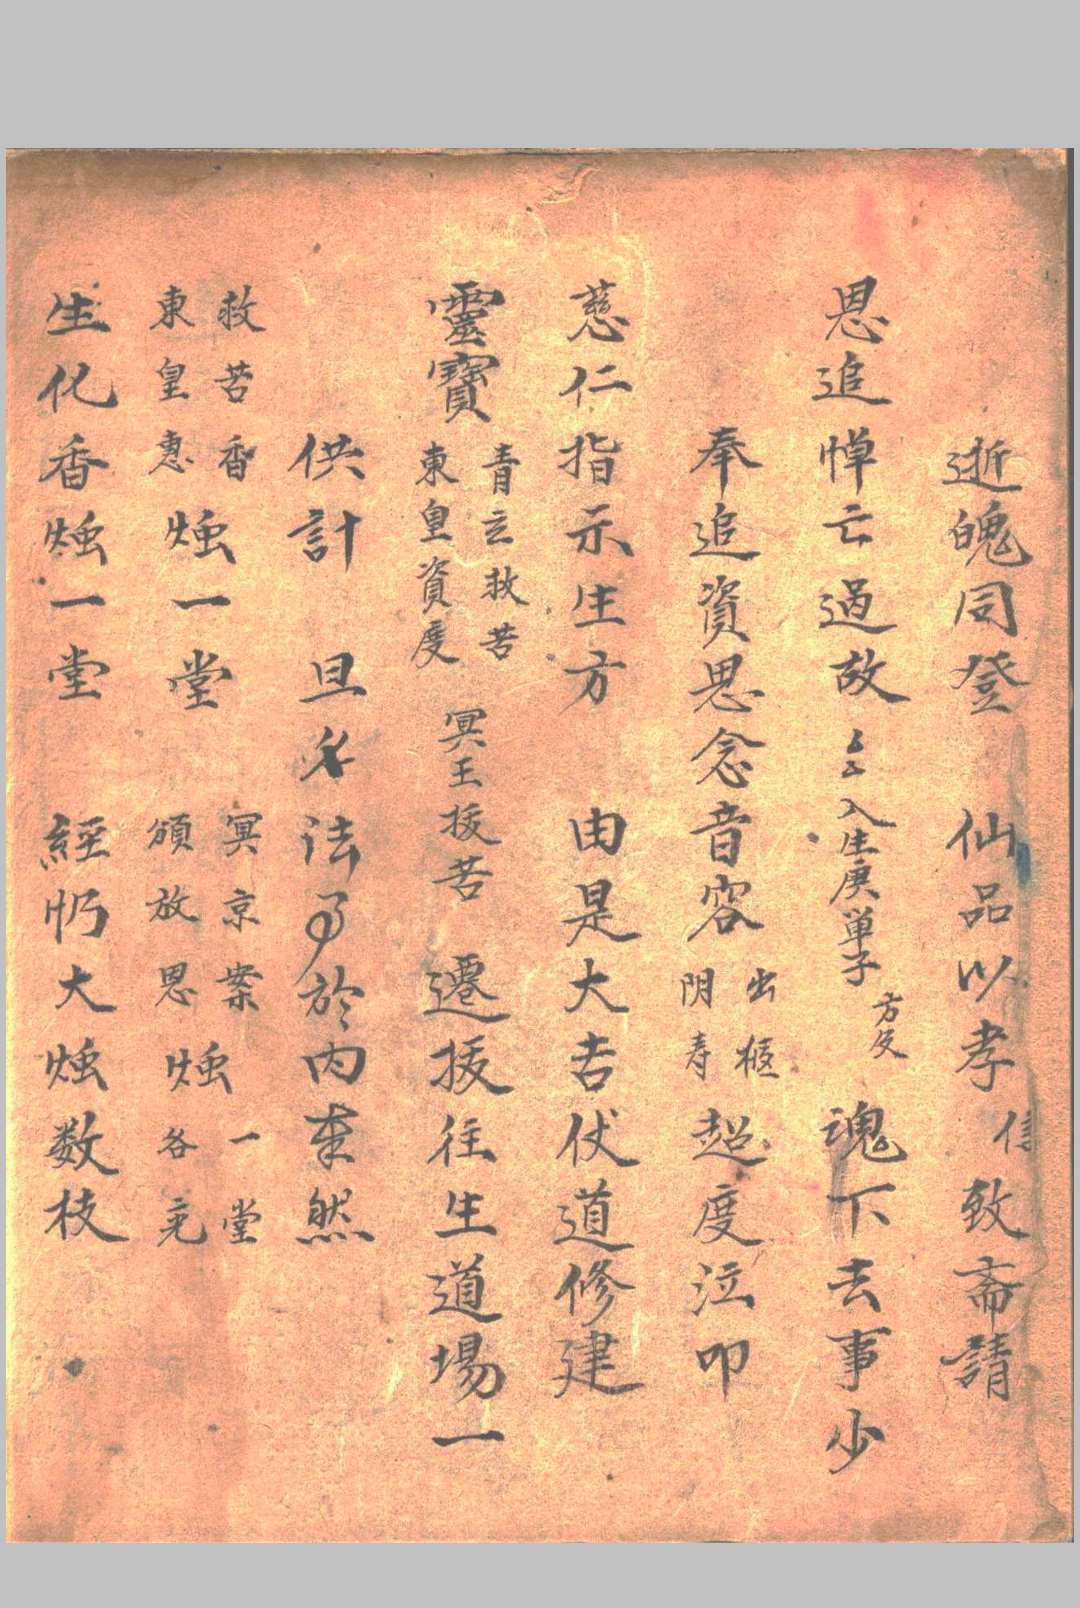 逝魄同登　仙品以孝信致斋請
恩追悼亡過故　入生庚单子方反魂下去事少
奉追資思念音容出柩阴寿超度泣叩
慈仁指示生方　由是大吉伏道修建
靈寶青玄救苦東皇資度冥王拔苦　遷拔往生道場一
供計　旦　法　於内　然
救苦香東皇惠烛一堂　冥京案頒放恩烛一堂各完
生化香烛一堂　經　大烛数枝